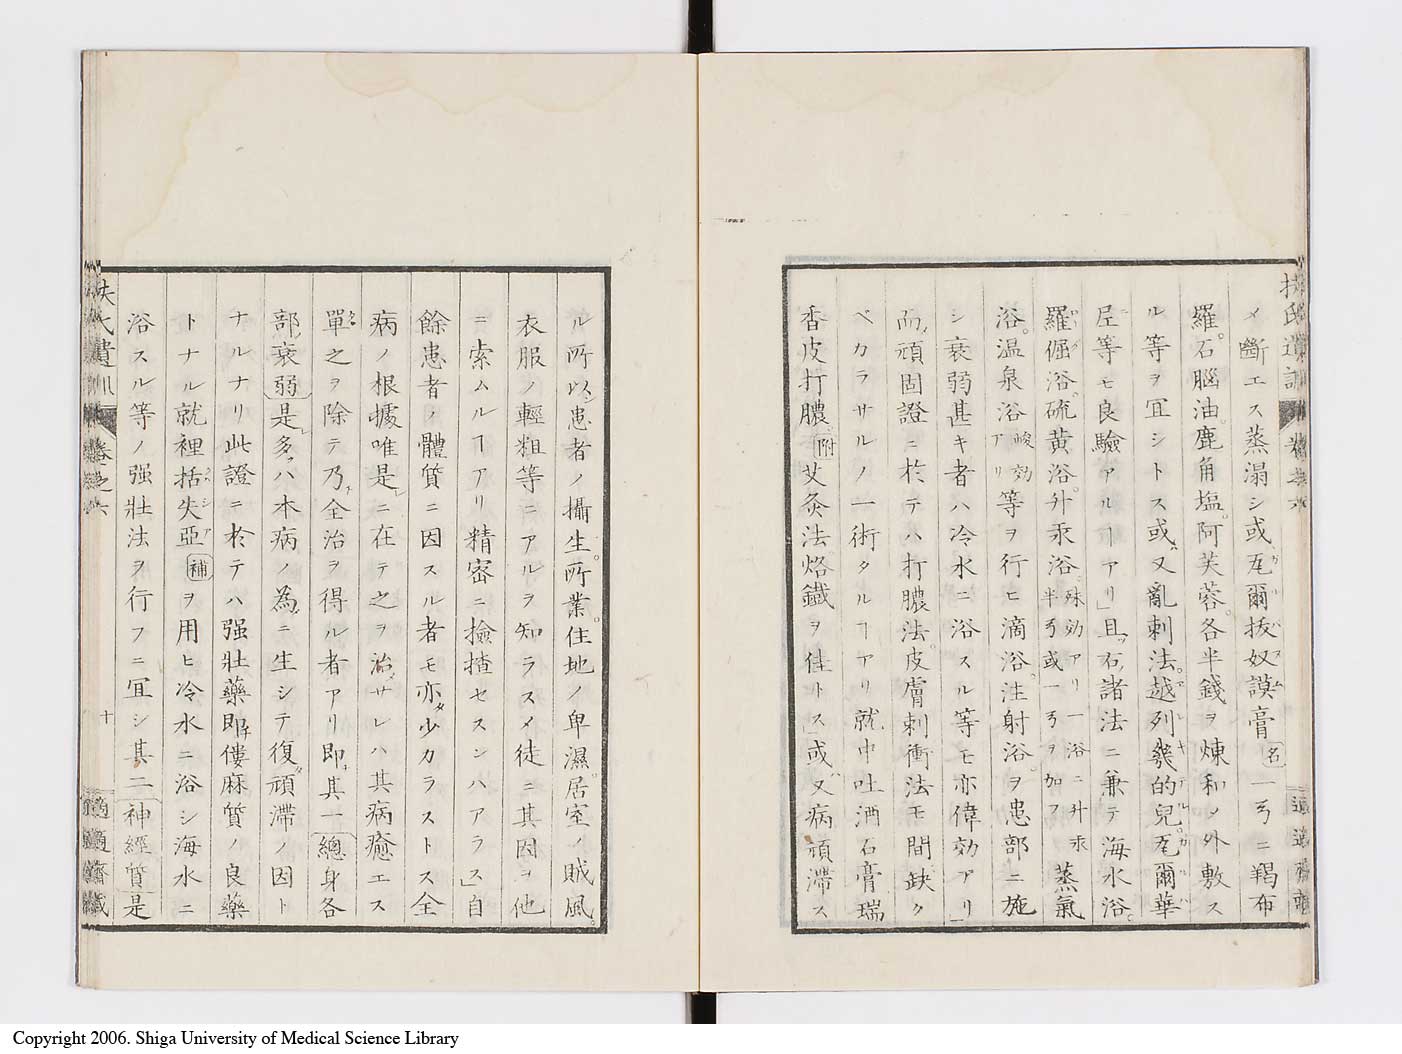 扶氏遺訓 卷之六
メ斷エス蒸溻シ或ハ瓦爾抜奴謨膏名一弓ニ羯布
羅。石腦油。鹿角塩。阿芙蓉。各半錢ヲ煉和ノ外敷ス
ル等ヲ冝シトス或ハ又亂刺法。越列幾的兒。瓦爾華
尼等モ良驗アルヿアリ」且ツ右ノ諸法ニ兼テ海水浴。
羅倔浴。硫黄浴。升汞浴。殊効アリ一浴ニ升汞半弓或ハ一弓ヲ加フ蒸氣
浴。温泉浴峻効アリ等ヲ行ヒ滴浴。注射浴。ヲ患部ニ施
シ衰弱甚キ者ハ冷水ニ浴スル等モ亦偉効アリ」
而ノ頑固證ニ於テハ打膿法。皮膚刺衝法モ間缺ク
ベカラサルノ一術タルヿアリ就中吐酒石膏瑞
香皮打膿附艾灸法烙鐵ヲ佳トス」或ハ又病頑滯ス
ル所以ン患者ノ攝生。所業。住地ノ卑濕。居室ノ賊風。
衣服ノ輕粗等ニアルヲ知ラスメ徒ニ其因ヲ他
ニ索ムルヿアリ精密ニ撿揸セスンハアラス」自
餘患者ノ體質ニ因スル者モ亦タ少カラストス全
病ノ根據唯是レニ在テ之ヲ治サレハ其病癒エス
單之ヲ除テ乃チ全治ヲ得ル者アリ即チ其一總身各
部ノ衰弱是レ多クハ本病ノ為ニ生シテ復タ頑滯ノ因ト
ナルナリ此證ニ於テハ强壯藥即チ僂麻質ノ良藥
トナル就裡括失亞補ヲ用ヒ冷水ニ浴シ海水ニ
浴スル等ノ强壯法ヲ行フニ冝シ其二神經質是
扶氏遺訓 卷之六 十